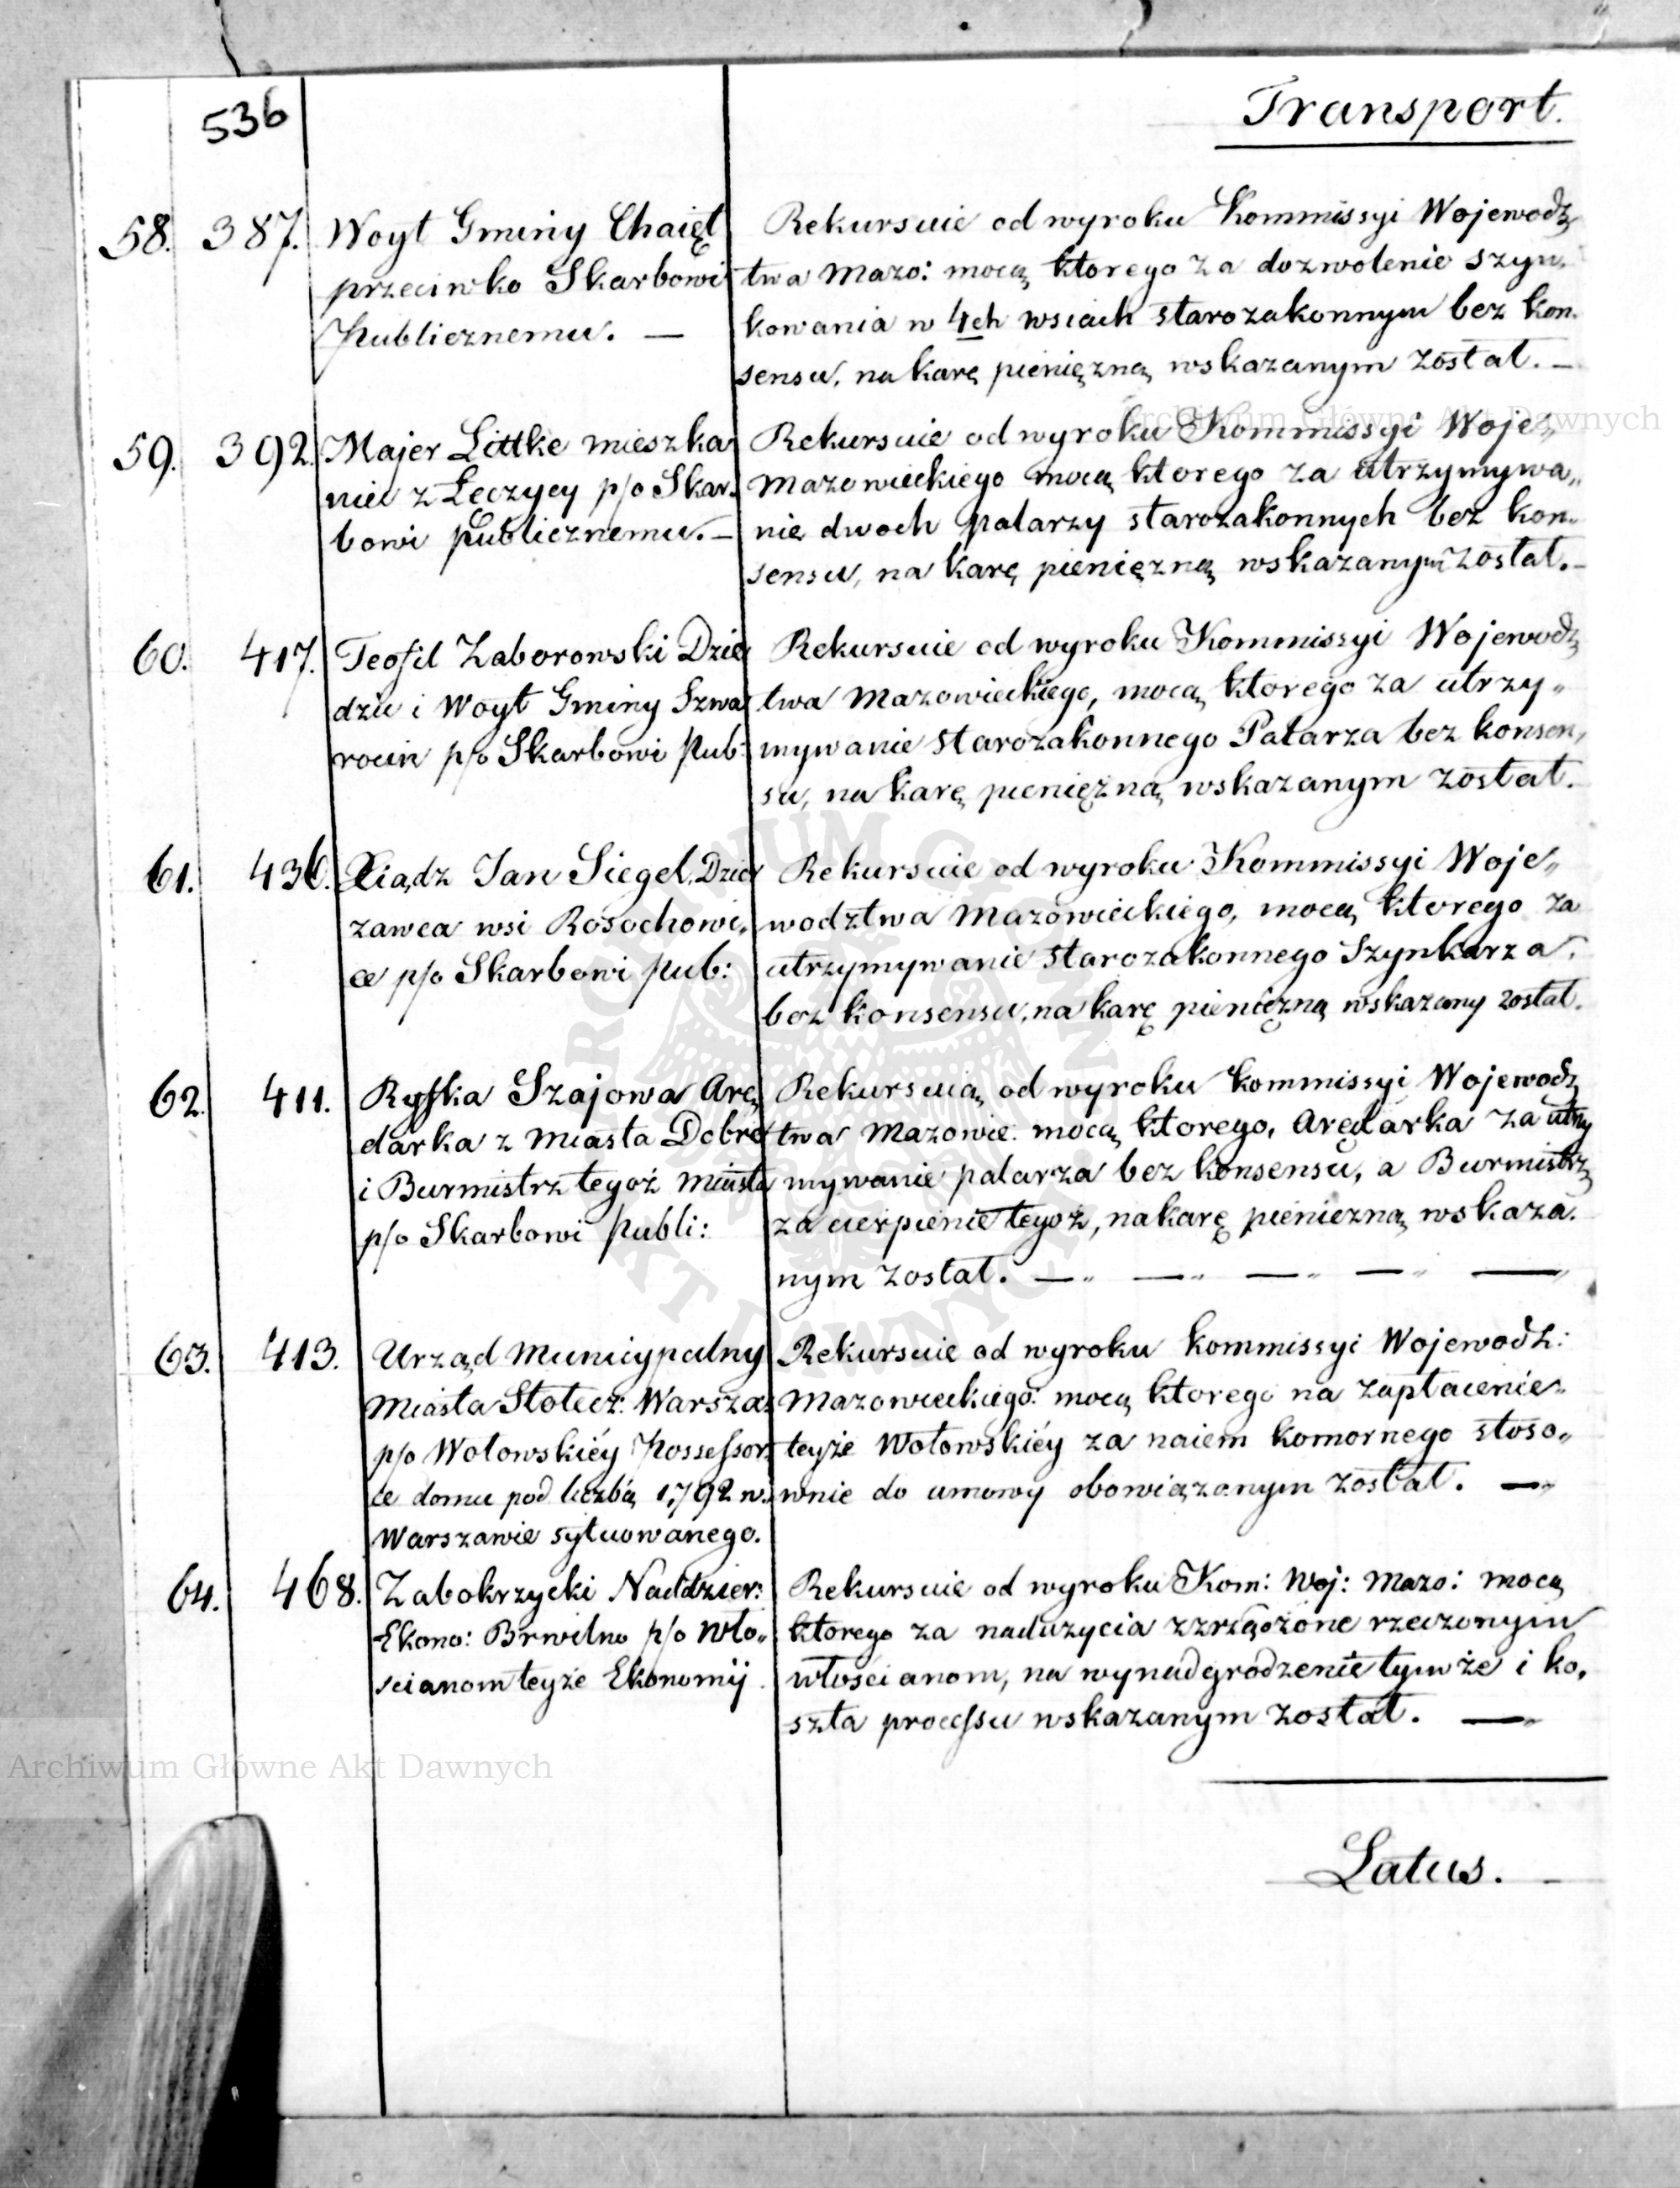 536
Transport.
58. 387. Woyt Gminy Chaięt
przeciwko Skarbowi
Publicznemu. —
Rekursuie od wyroku Kommissyi Wojewodz
twa Mazo: mocą ktorego za dozwolenie szyn„
kowania w 4ch wsiach starozakonnym bez kon„
sensu, na karę pieniężną wskazanym został. —
59. 392. Majer Littke mieszka
niec z Łęczycy p/o Skar„
bowi publicznemu. —
Rekursuie od wyroku Kommissyi Woje„
Mazowieckiego mocą ktorego za utrzymywa„
nie dwoch palarzy starozakonnych bez kon„
sensu, na karę pieniężną wskazanym został. —
60. 417. Teofil Zaborowski Dzie
dzic i Woyt Gminy Szwa
rocin p/o Skarbowi Pub:
Rekursuie od wyroku Kommissyi Wojewodz
twa Mazowieckiego, mocą ktorego za utrzy„
mywanie starozakonnego Palarza bez konsen„
su, na karę pieniężną wskazanym został.
61. 436. Xiądz Jan Siegel, Dzier
zawca wsi Rosochowi„
ce p/o Skarbowi Pub:
Rekursuie od wyroku Kommissyi Woje„
wodztwa Mazowieckiego, mocą ktorego za
utrzymywanie starozakonnego Szynkarza,
bez konsensu, na karę pieniężną wskazany został.
62. 411. Ryfka Szajowa Arę
darka z miasta Dobre
i Burmistrz tegoż miasta
p/o Skarbowi Publi:
Rekursuią od wyroku Kommissyi Wojewodz
twa Mazowie: mocą ktorego, Arędarka za utrzy
mywanie palarza bez konsensu, a Burmistrz
za cierpienie tegoż, na karę pieniezną wskaza„
nym został. —„ —„ —„ —„ —„
63. 413. Urząd Municypalny
Miasta Stołecz: Warsza:
p/o Wołowskiéy Possessor
ce domu pod liczbą 1,792 w
Warszawie sytuowanego.
Rekursuie od wyroku Kommissyi Wojewodz:
Mazowieckiego: mocą ktorego na zapłacenie
teyże Wołowskiéy za naiem komornego stoso„
wnie do umowy obowiązanym został. —„
64. 468. Zabokrzycki Naddzier:
Ekono: Brwilno p/o Wło„
scianom teyże Ekonomij.
Rekursuie od wyroku Kom: Woj: Mazo: mocą
ktorego za nadużycia zzrządzone rzeczonym
włościanom, na wynadgrodzenie tymże i ko„
szta processu wskazanym został. —„
Latus. —
Archiwum Główne Akt Dawnych
Archiwum Główne Akt Dawnych
ARCHIWUM GŁÓWNE AKT DAWNYCH